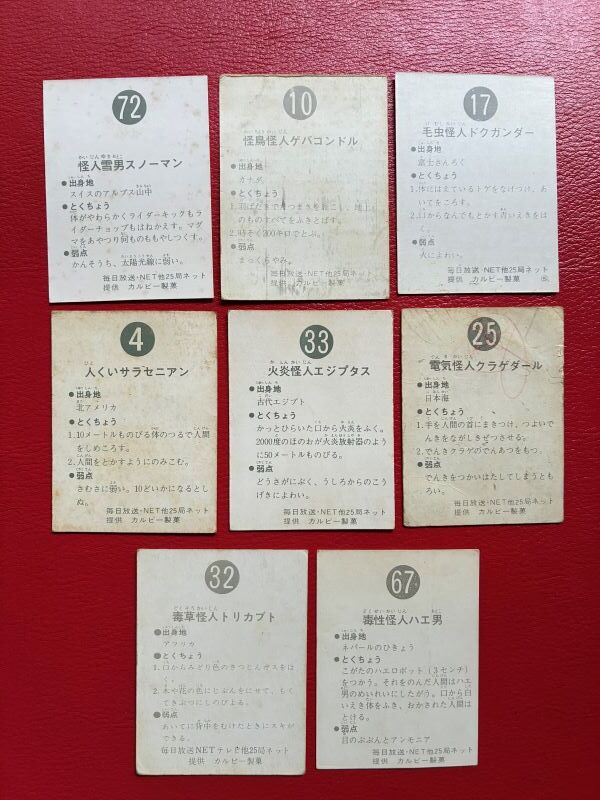 72
怪人雪男スノーマン
●出身地
スイスのアルプス山中
●とくちょう
体がやわらかくライダーキックもラ
イダーチョップもはねかえす。マグ
マをあやつり何ものももやしつくす。
●弱点
かんそうち、太陽光線に弱い。
毎日放送・NET他25局ネット
提供 カルビー製菓
10
怪鳥怪人ゲバコンドル
●出身地
カナダ
●とくちょう
1.羽ばたきでつまきをおこし、地上
のものすべてをふきとばす。
2.時そく200キロでとぶ。
●弱点
まっくらやみ。
毎日放送・NET他25局ネット
提供 カルビー製菓
17
毛虫怪人ドクガンダー
●出身地
富士さんろく
●とくちょう
1.体にはえているトゲをなげつけ、あ
いてをころす。
2.口からなんでもとかす白いえきをは
く。
●弱点
火によわい。
毎日放送・NET他25局ネット
提供 カルビー製菓
4
人くいサラセニアン
●出身地
北アメリカ
●とくちょう
1.10メートルものびる体のつるで人間
をしめころす。
2.人間をとかすようにのみこむ。
●弱点
さむさに弱い。10どいかになるとし
ぬ。
毎日放送・NET他25局ネット
提供 カルビー製菓
33
火炎怪人エジプタス
●出身地
古代エジプト
●とくちょう
かっとひらいた口から火炎をふく。
2000度のほのおが火炎放射器のよう
に50メートルものびる。
●弱点
どうさがにぶく、うしろからのこう
げきによわい。
毎日放送・NET他25局ネット
提供 カルビー製菓
25
電気怪人クラゲダール
●出身地
日本海
●とくちょう
1.手を人間の首にまきつけ、つよいで
んきをながしきぜつさせる。
2.でんきクラゲのでんあつをもつ。
●弱点
でんきをつかいはたしてしまうとも
ろい。
毎日放送・NET他25局ネット
提供 カルビー製菓
32
毒草怪人トリカブト
●出身地
アフリカ
●とくちょう
1.口からみどり色のきつじんガスをは
く。
2.木や花の色にじぶんをにせて、もく
てきぶつにしのびよる。
●弱点
あいてに背中をむけたときにスキが
できる。
毎日放送NETテレビ他25局ネット
提供 カルビー製菓
67
毒性怪人ハエ男
●出身地
ネパールのひきょう
●とくちょう
こがたのハエロボット(3センチ)
をつかう。それをのんだ人間はハエ
男のめいれいにしたがう。口から白
いえき体をふき、おかされた人間は
とける。
●弱点
目のぶぶんとアンモニア
毎日放送・NET他25局ネット
提供 カルビー製菓